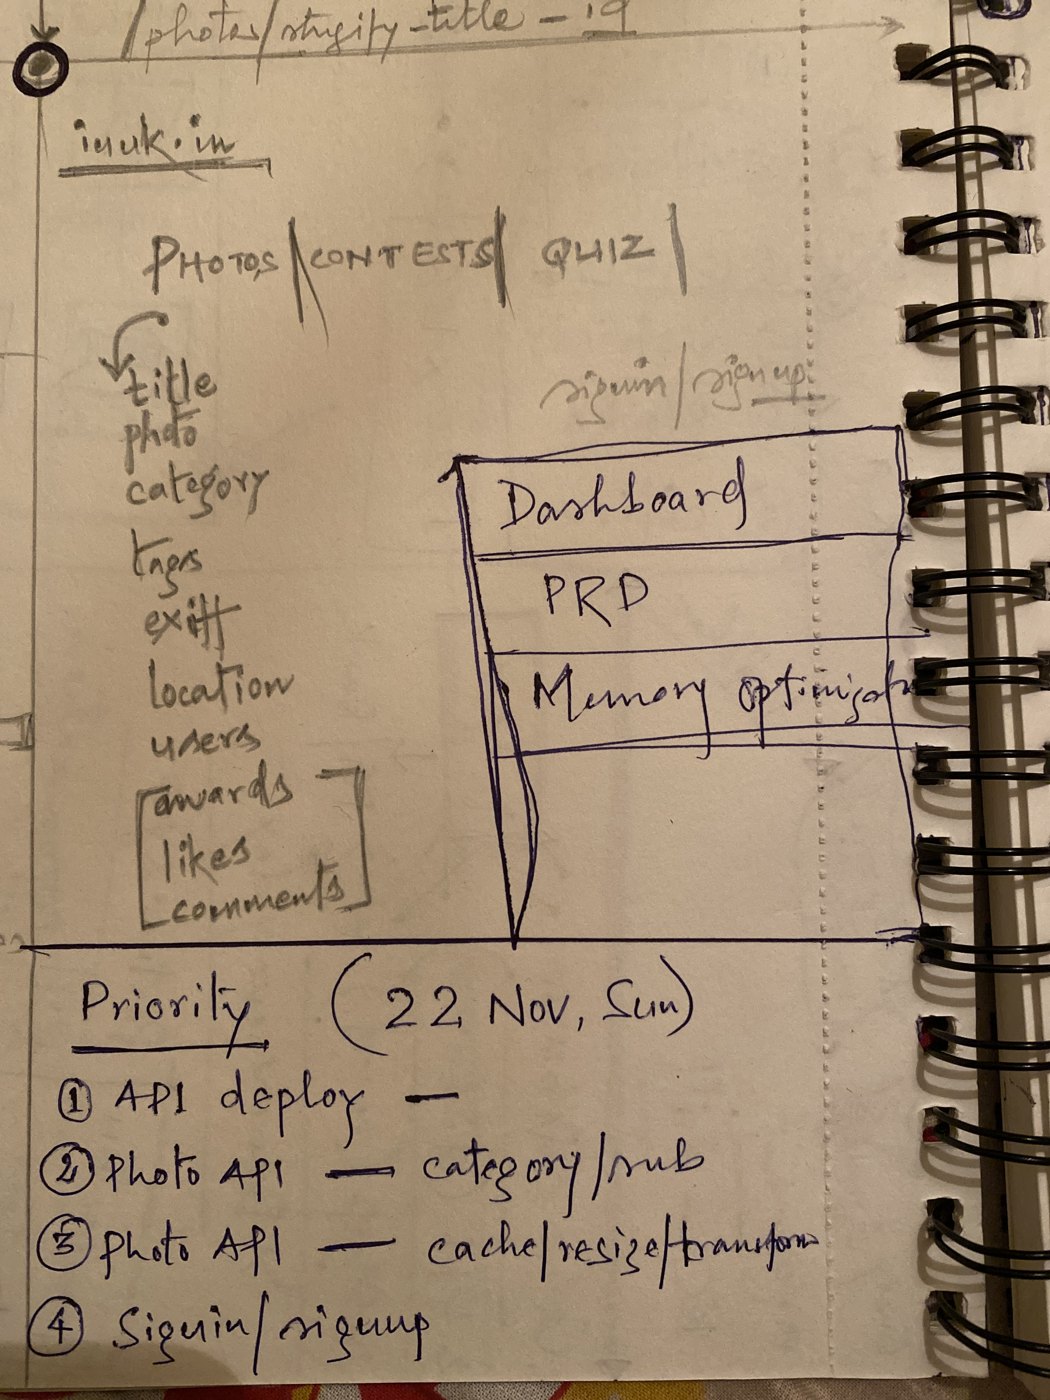 /photos/slugify-title-id
inuk.in
PHOTOS | CONTESTS | QUIZ |
signin/signup
title
photo
category
tags
exiff
location
users
awards
likes
comments
Dashboard
PRD
Memory
Priority (22 Nov, Sun)
① API deploy —
② Photo API — category/sub
③ Photo API — cache/resize/transform
④ Signin/signup